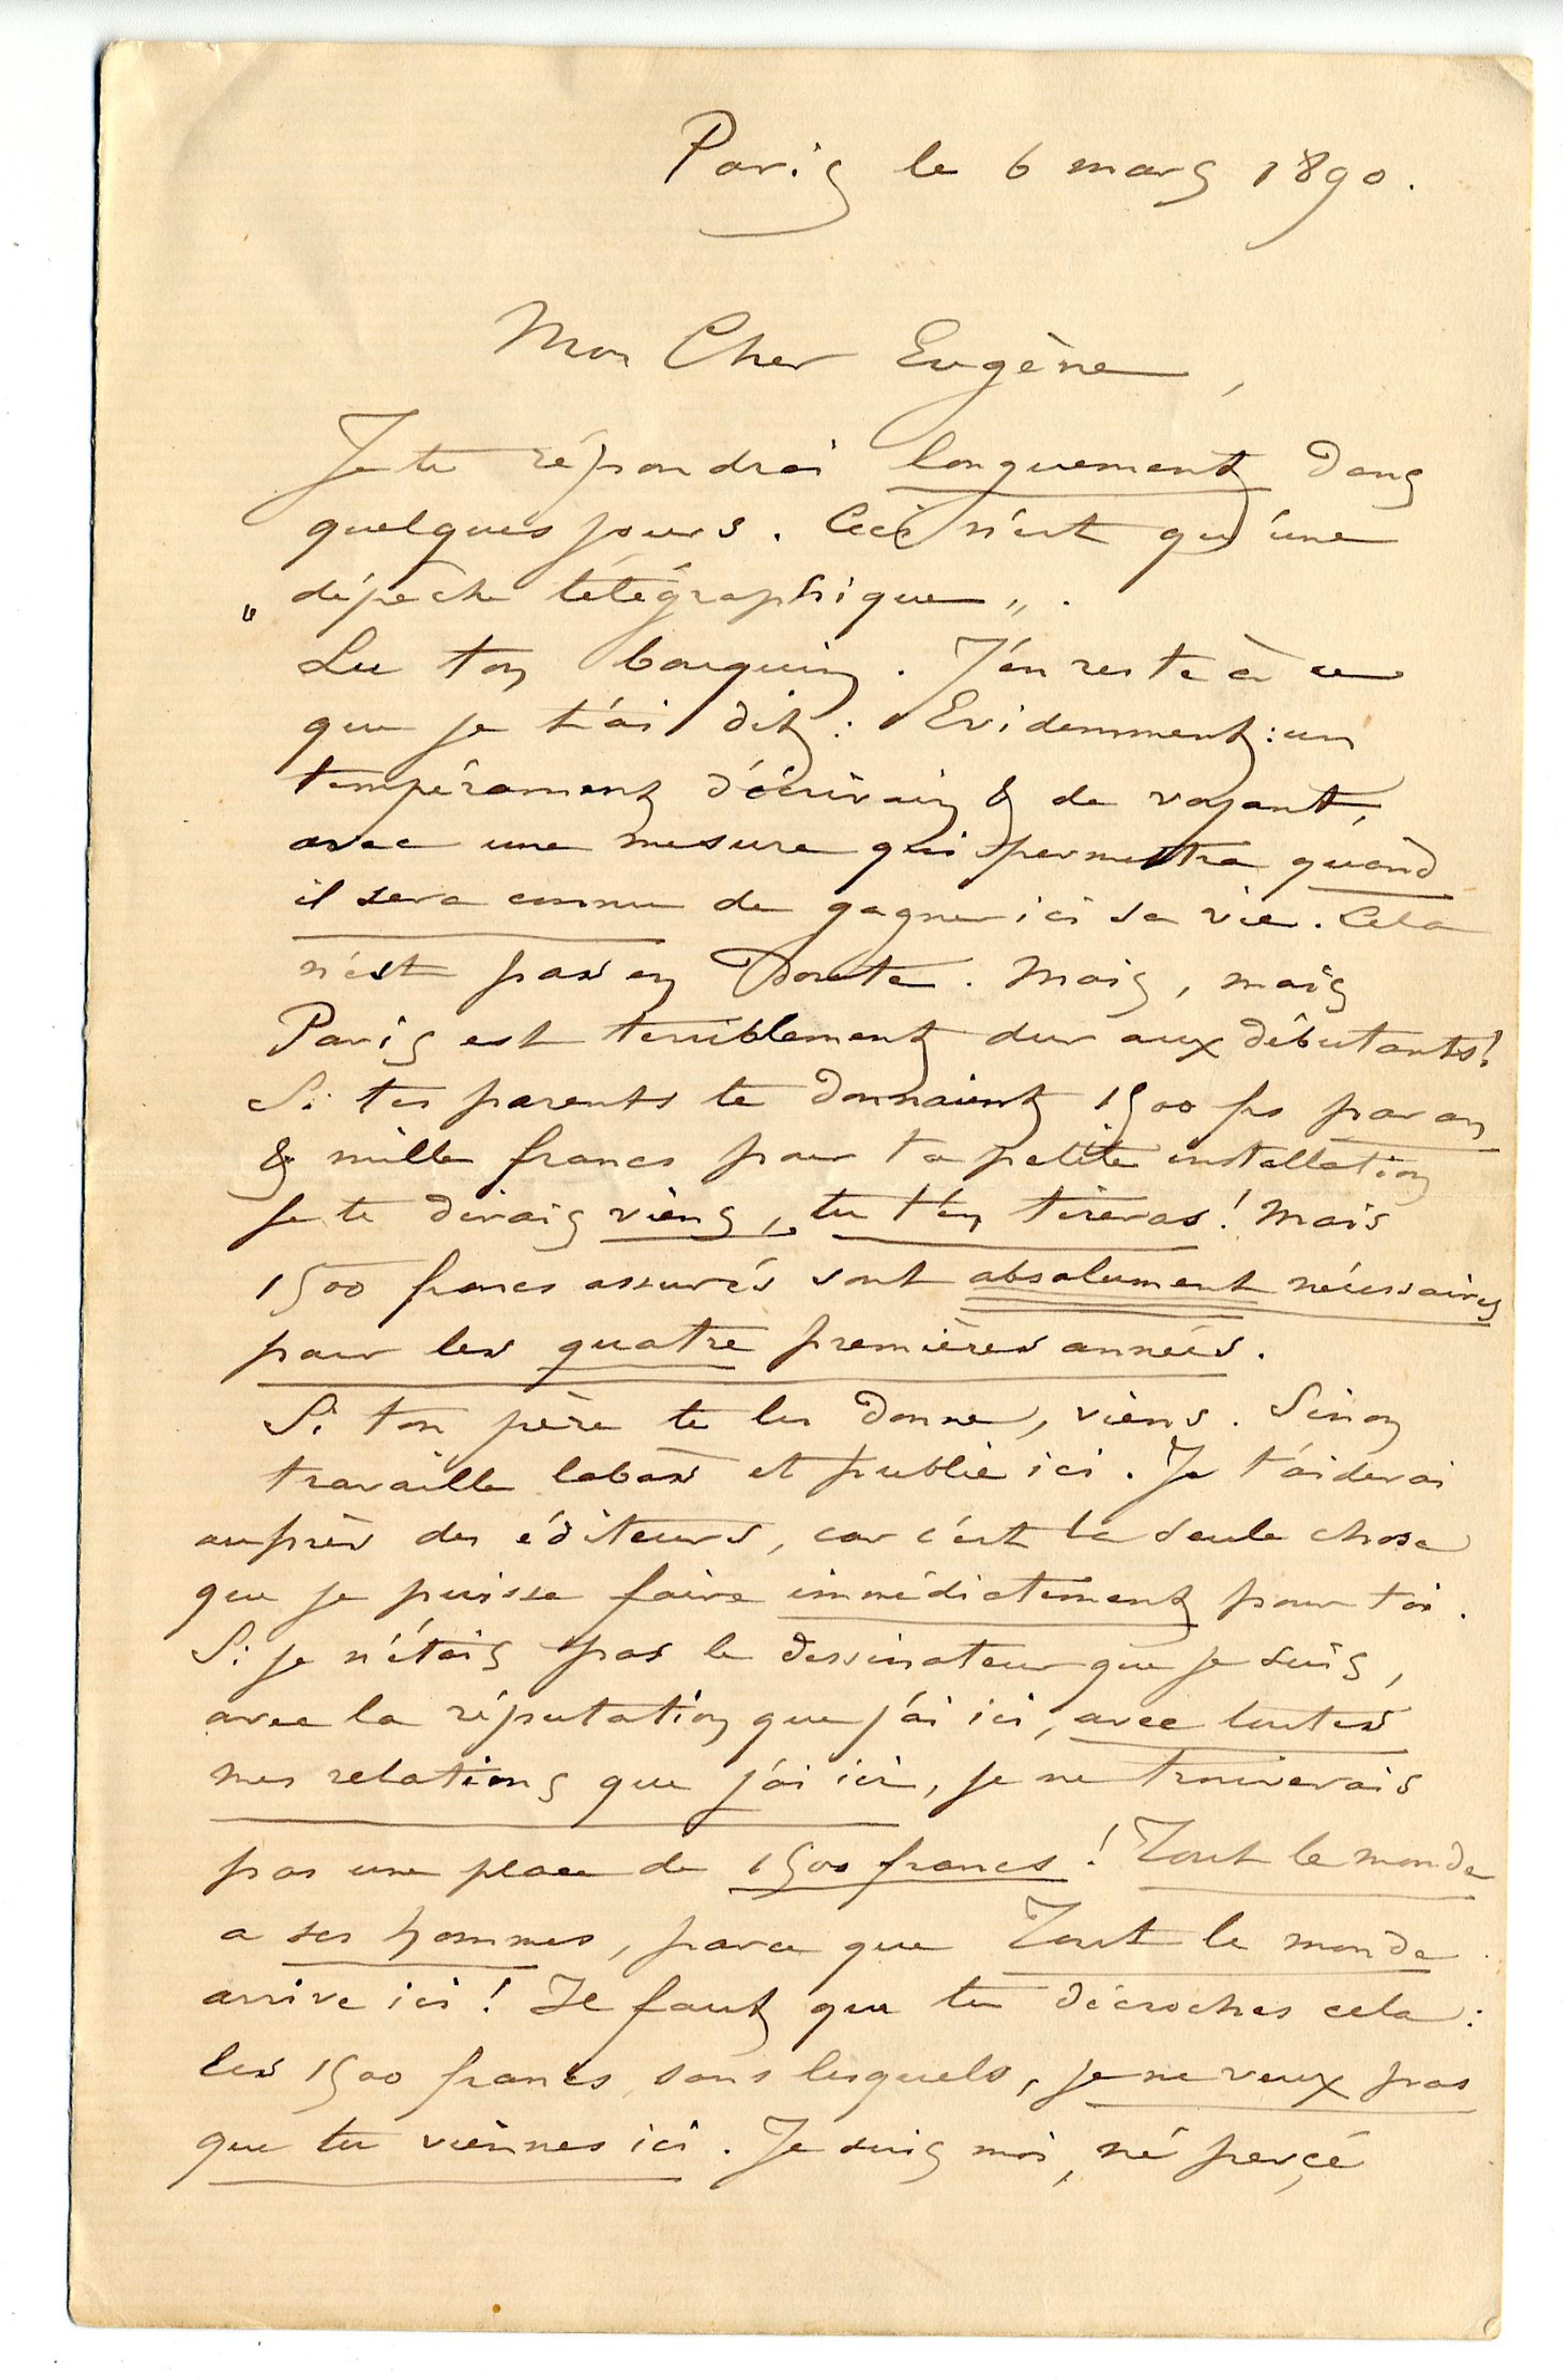 Paris le 6 mars 1890.
Mon Cher Eugène,
Je te répondrai longuement dans
quelques jours. Ceci n'est qu'une
„ dépêche télégraphique „ .
Lu ton bouquin. J'en reste à ce
que je t'ai dit : Evidemment : un
tempérament d'écrivain & de voyant,
avec une mesure qui permettra quand
il sera connu de gagner ici sa vie. Cela
n'est pas en doute. Mais, mais
Paris est terriblement dur aux débutants!
Si tes parents te donnaient 1500 frs par an
& mille francs pour ta petite installation
je te dirais viens, tu t'en tireras! Mais
1500 francs assurés sont absolument nécessaires
pour les quatre premières années.
Si ton père te les donne, viens. Sinon
travaille labas et publie ici. Je t'aiderai
auprès des éditeurs, car c'est la seule chose
que je puisse faire immédiatement pour toi.
Si je n'étais pas le dessinateur que je suis,
avec la réputation que j'ai ici, avec toutes
mes relations que j'ai ici, je ne trouverais
pas une place de 1500 francs! Tout le monde
a ses hommes, parce que Tout le monde
arrive ici! Il faut que tu décroches cela :
les 1500 francs sans lesquels, je ne veux pas
que tu viennes ici. Je suis moi, né perçé